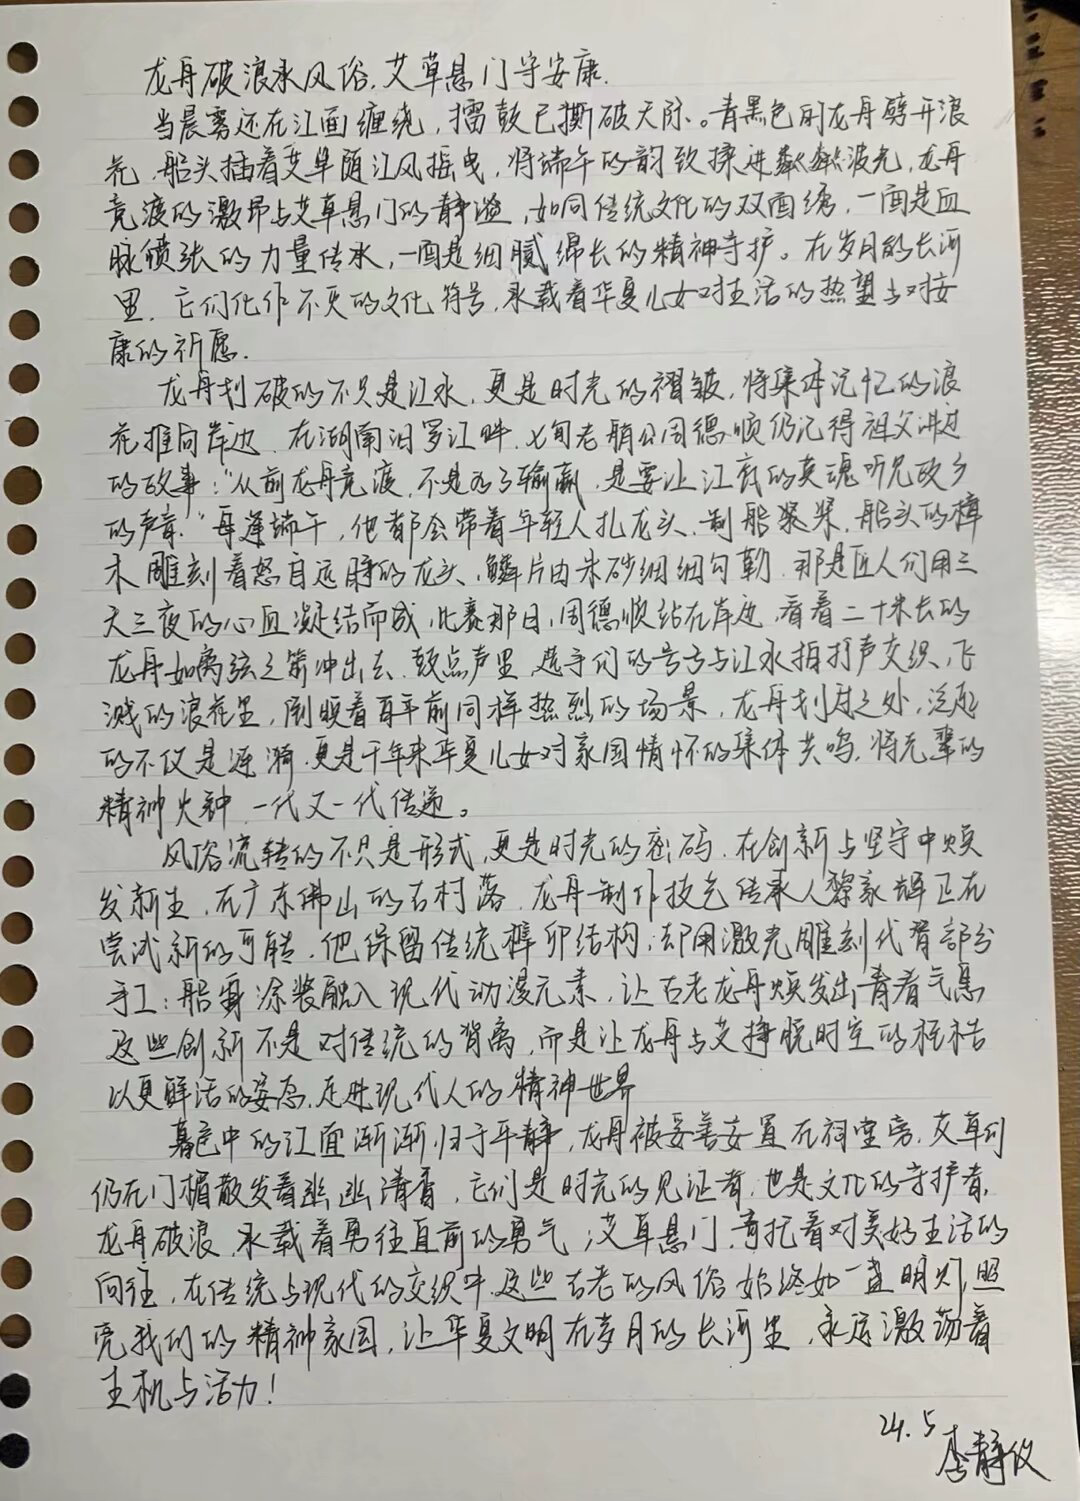 龙舟破浪承风俗，艾草悬门守安康.
当晨雾还在江面缠绕，擂鼓已撕破天际。青黑色的龙舟劈开浪
花，船头插着艾草随江风摇曳，将端午的韵致揉进粼粼波光，龙舟
竞渡的激昂与艾草悬门的静谧，如同传统文化的双面绣，一面是血
脉偾张的力量传承，一面是细腻绵长的精神守护。在岁月的长河
里，它们化作不灭的文化符号，承载着华夏儿女对生活的热望与对安
康的祈愿.
龙舟划破的不只是江水，更是时光的褶皱，将集体记忆的浪
花推向岸边.在湖南汨罗江畔，七旬老艄公周德顺仍记得祖父讲过
的故事："从前龙舟竞渡，不是为了输赢，是要让江底的英魂听见故乡
的声音."每逢端午，他都会带着年轻人扎龙头、制船桨，船头的樟
木雕刻着怒目远睁的龙头，鳞片由朱砂细细勾勒.那是匠人们用三
天三夜的心血凝结而成，比赛那日，周德顺站在岸边，看着二十米长的
龙舟如离弦之箭冲出去，鼓点声里，选手们的号子与江水拍打声交织，飞
溅的浪花里，倒映着百年前同样热烈的场景，龙舟划过之处，泛起
的不仅是涟漪，更是千年来华夏儿女对家国情怀的集体共鸣，将先辈的
精神火种，一代又一代传递。
风俗流转的不只是形式，更是时光的密码，在创新与坚守中焕
发新生，在广东佛山的古村落，龙舟制作技艺传承人黎家辉正在
尝试新的可能，他保留传统榫卯结构，却用激光雕刻代替部分
手工；船身涂装融入现代动漫元素，让古老龙舟焕发出青春气息
这些创新不是对传统的背离，而是让龙舟与艾挣脱时空的桎梏
以更鲜活的姿态，走进现代人的精神世界
暮色中的江面渐渐归于平静，龙舟被妥善安置在祠堂旁，艾草们
仍在门楣散发着幽幽清香，它们是时光的见证者，也是文化的守护者，
龙舟破浪，承载着勇往直前的勇气；艾草悬门，寄托着对美好生活的
向往，在传统与现代的交织中，这些古老的风俗始终如一盏明灯，照
亮我们的精神家园，让华夏文明在岁月的长河里，永远激荡着
生机与活力！
24.5
李静仪